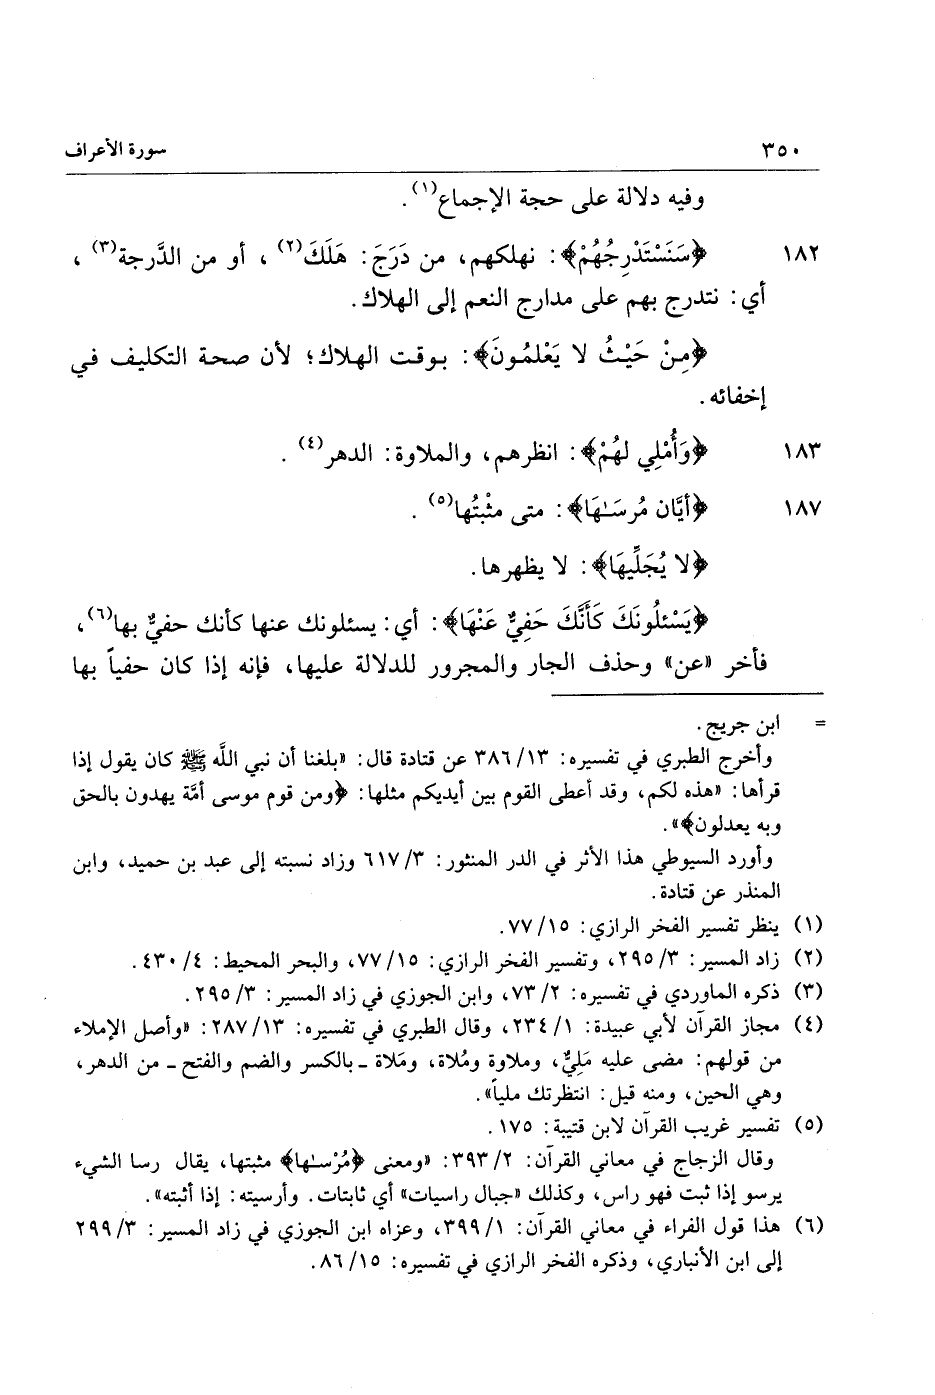 ٣٥٠ سورة الأعراف
وفيه دلالة على حجة الإجماع(١).
١٨٢ ﴿سَنَسْتَدْرِجُهُمْ﴾: نهلكهم، من دَرَجَ: هَلَكَ(٢)، أو من الدَّرجة(٣)،
أي: نتدرج بهم على مدارج النعم إلى الهلاك.
﴿مِنْ حَيْثُ لا يَعْلمُونَ﴾: بوقت الهلاك؛ لأن صحة التكليف في
إخفائه.
١٨٣ ﴿وَأُمْلِي لهُمْ﴾: انظرهم، والملاوة: الدهر(٤).
١٨٧ ﴿أيَّان مُرسَـٰهَا﴾: متى مثْبتُها(٥).
﴿لا يُجَلِّيهَا﴾: لا يظهرها.
﴿يَسْئلُونَكَ كَأَنَّكَ حَفِيٌّ عَنْهَا﴾: أي: يسئلونك عنها كأنك حفيٌّ بها(٦)،
فأخر «عن» وحذف الجار والمجرور للدلالة عليها، فإنه إذا كان حفياً بها
= ابن جريج.
وأخرج الطبري في تفسيره: ١٣/ ٣٨٦ عن قتادة قال: «بلغنا أن نبي اللَّه ﷺ كان يقول إذا
قرأها: «هذه لكم، وقد أعطى القوم بين أيديكم مثلها: ﴿ومن قوم موسى أمَّة يهدون بالحق
وبه يعدلون﴾».
وأورد السيوطي هذا الأثر في الدر المنثور: ٣/ ٦١٧ وزاد نسبته إلى عبد بن حميد، وابن
المنذر عن قتادة.
(١) ينظر تفسير الفخر الرازي: ١٥/ ٧٧.
(٢) زاد المسير: ٣/ ٢٩٥، وتفسير الفخر الرازي: ١٥/ ٧٧، والبحر المحيط: ٤/ ٤٣٠.
(٣) ذكره الماوردي في تفسيره: ٢/ ٧٣، وابن الجوزي في زاد المسير: ٣/ ٢٩٥.
(٤) مجاز القرآن لأبي عبيدة: ١/ ٢٣٤، وقال الطبري في تفسيره: ١٣/ ٢٨٧: «وأصل الإملاء
من قولهم: مضى عليه مَلِيٌّ، وملاوة ومُلاة، ومَلاة ـ بالكسر والضم والفتح ـ من الدهر،
وهي الحين، ومنه قيل: انتظرتك ملياً».
(٥) تفسير غريب القرآن لابن قتيبة: ١٧٥.
وقال الزجاج في معاني القرآن: ٢/ ٣٩٣: «ومعنى ﴿مُرْسـٰها﴾ مثبتها، يقال رسا الشيء
يرسو إذا ثبت فهو راس، وكذلك «جبال راسيات» أي ثابتات. وأرسيته: إذا أثبته».
(٦) هذا قول الفراء في معاني القرآن: ١/ ٣٩٩، وعزاه ابن الجوزي في زاد المسير: ٣/ ٢٩٩
إلى ابن الأنباري، وذكره الفخر الرازي في تفسيره: ١٥/ ٨٦.